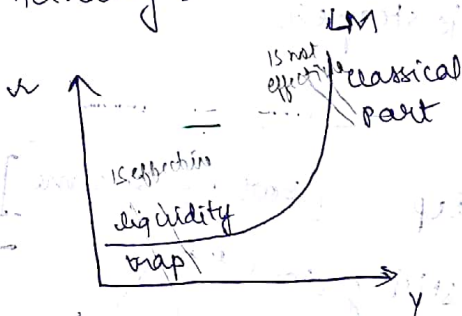 LM
IS not
effective
classical
part
r
IS effective
liquidity
trap
y